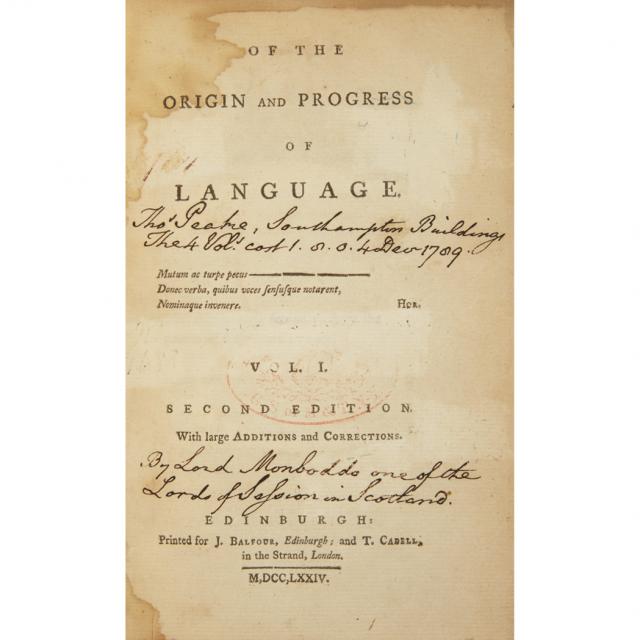 OF THE
ORIGIN AND PROGRESS
OF
LANGUAGE.
Thos Peake, Southampton Buildings
The 4 Vols. cost 1. 8. 0. 4 Decr 1789.
Mutum ac turpe pecus
Donec verba, quibus voces ſenſuſque notarent,
Nominaque invenere. HOR.
VOL. I.
SECOND EDITION.
With large ADDITIONS and CORRECTIONS.
By Lord Monboddo one of the
Lords of Seſsion in Scotland.
EDINBURGH:
Printed for J. BALFOUR, Edinburgh; and T. CADELL,
in the Strand, London.
M,DCC,LXXIV.